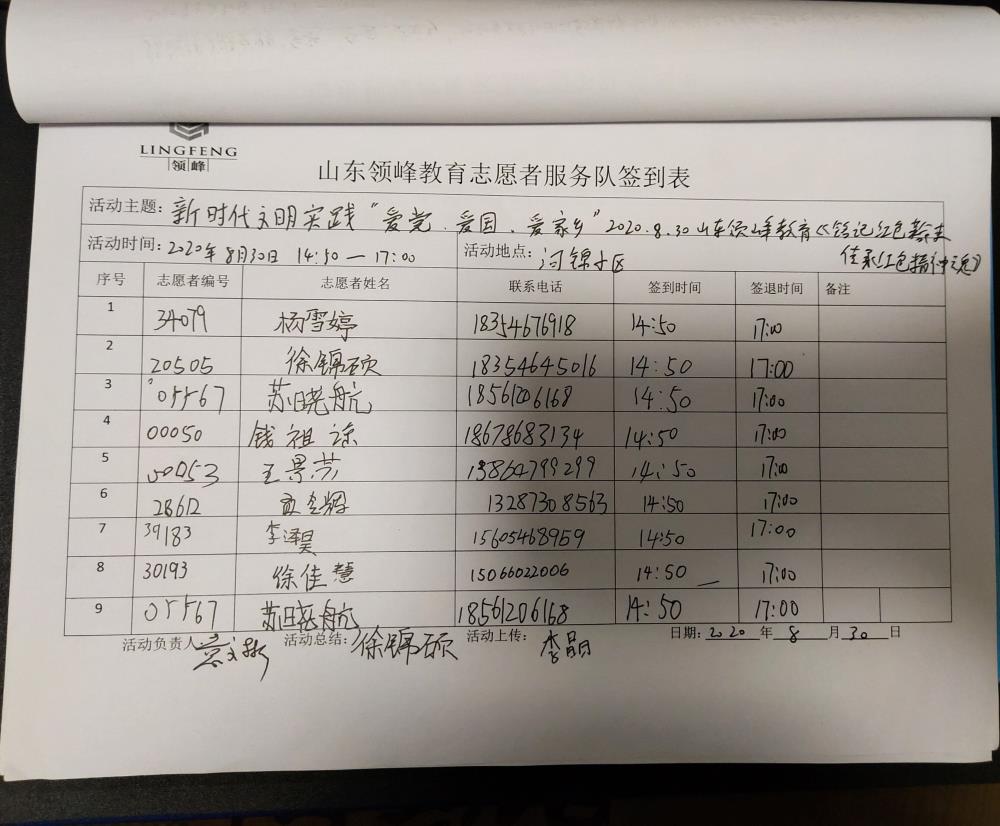 LINGFENG
领峰
山东领峰教育志愿者服务队签到表
活动主题：新时代文明实践“爱党、爱国、爱家乡”2020.8.30山东领峰教育《铭记红色
传承红色精神
活动时间：2020年8月30日 14:50—17:00 活动地点：河锦小区
序号 志愿者编号 志愿者姓名 联系电话 签到时间 签退时间 备注
1 34079 杨雪婷 18354676918 14:50 17:00
2 20505 徐锦硕 18354645016 14:50 17:00
3 05567 苏晓航 18561206168 14:50 17:00
4 00050 钱祖 18678683134 14:50 17:00
5 00053 王景芬 13864799299 14:50 17:00
6 28612 13287308563 14:50 17:00
7 39183 李泽昊 15605468959 14:50 17:00
8 30193 徐佳慧 15066022006 14:50 17:00
9 05567 苏晓航 18561206168 14:50 17:00
活动负责人： 活动总结：徐锦硕 活动上传：李晶 日期：2020年8月30日